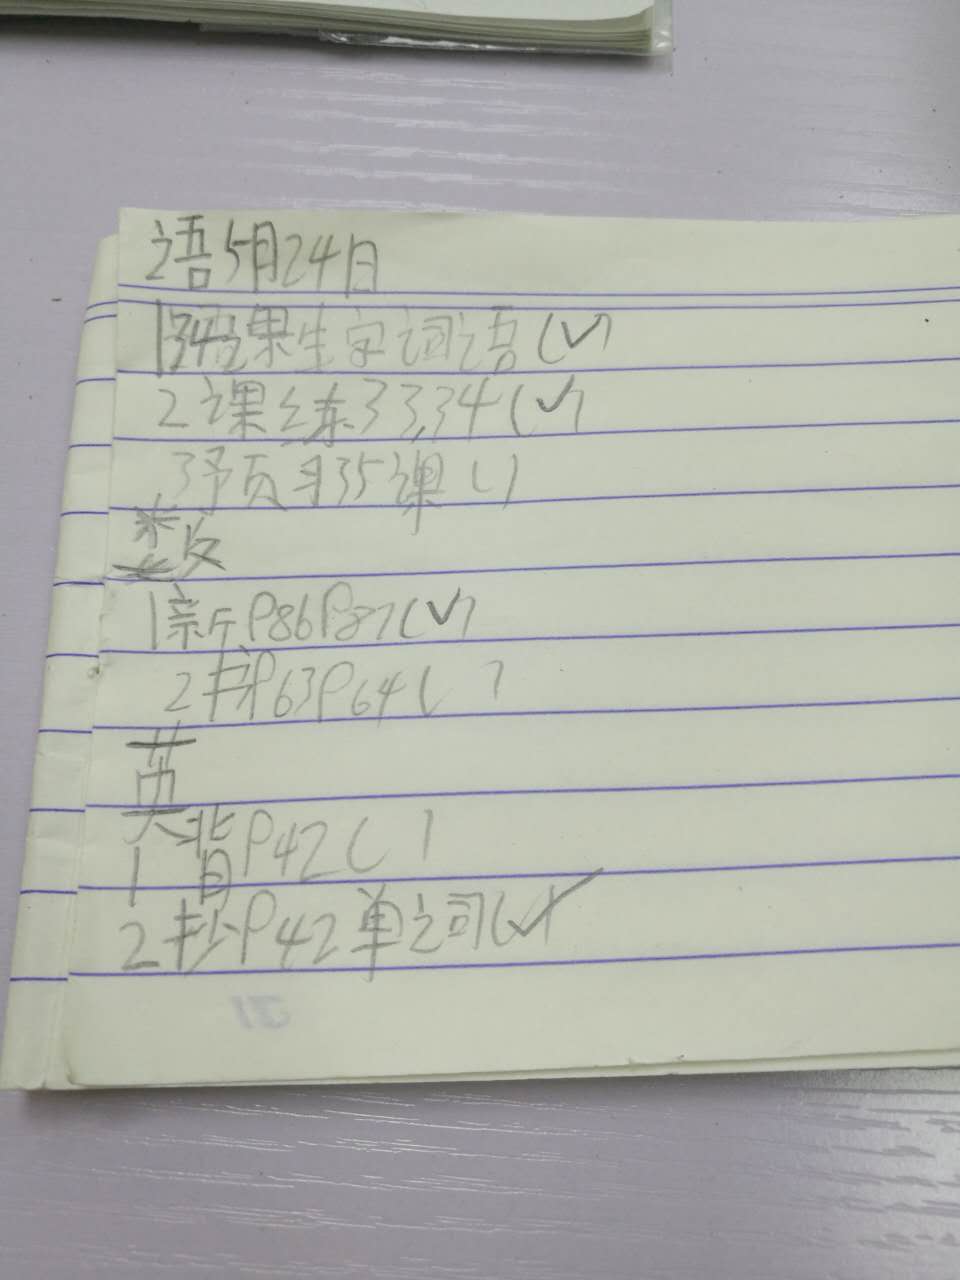 语5月24日
1 34课生字词语(✓)
2课练33,34(✓)
3预习35课( )
数
1新P86P87(✓)
2书P63P64( )
英
1背P42( )
2抄P42单词(✓)